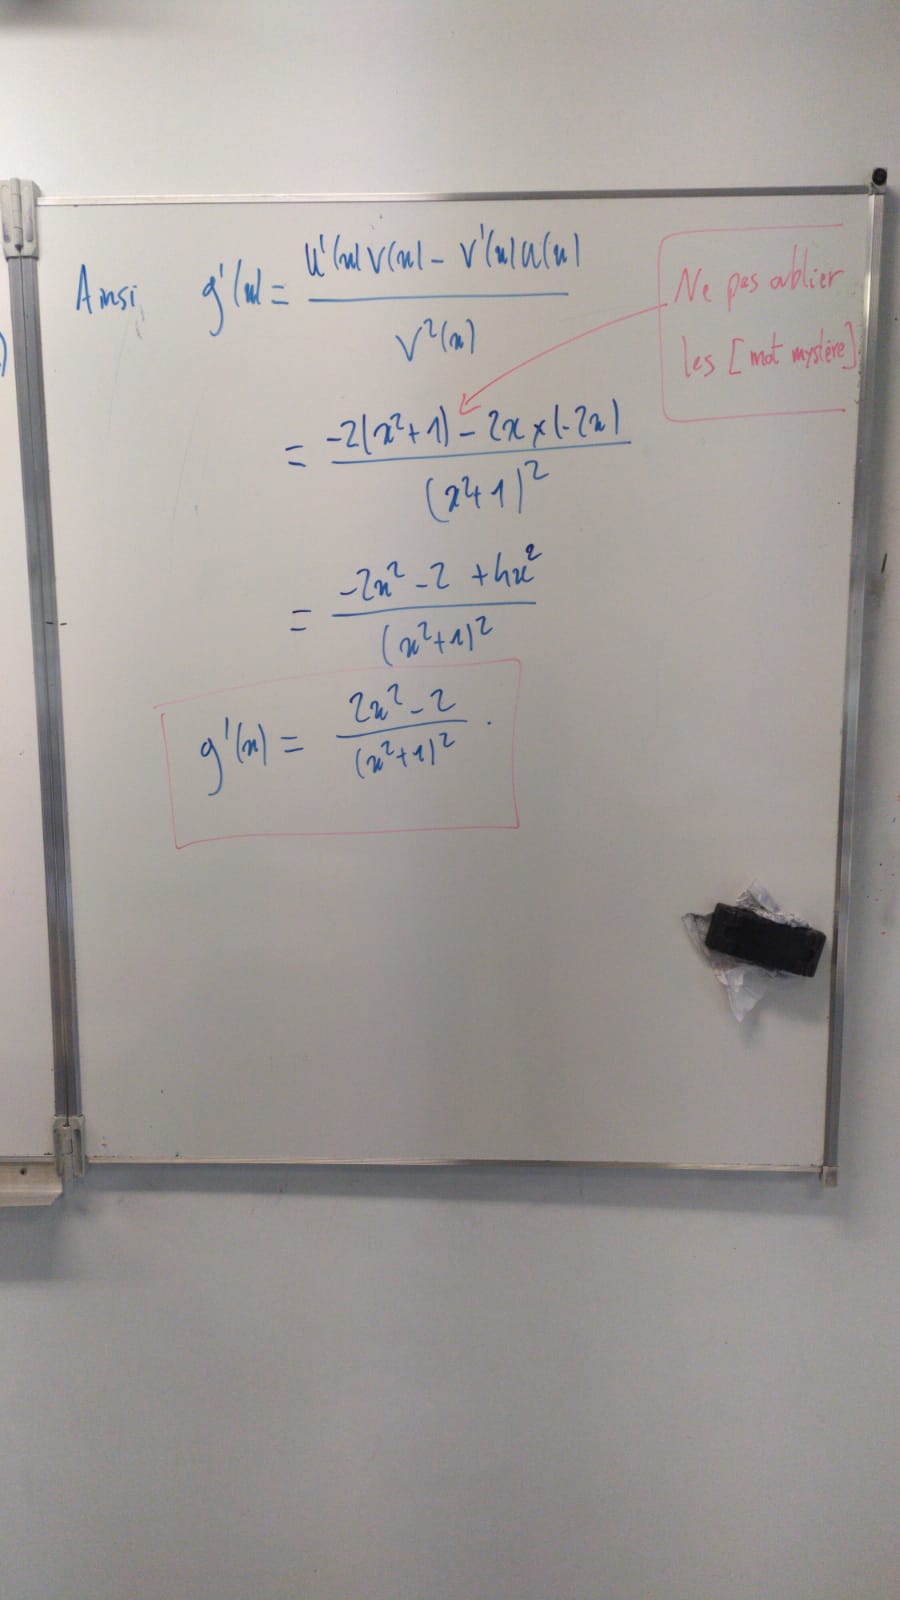 Ainsi, g'(x) = (u'(x)v(x) - v'(x)u(x)) / v²(x)
Ne pas oublier
les [mot mystère]
= (-2(x²+1) - 2x × (-2x)) / (x²+1)²
= (-2x² - 2 + 4x²) / (x²+1)²
g'(x) = (2x² - 2) / (x²+1)² .